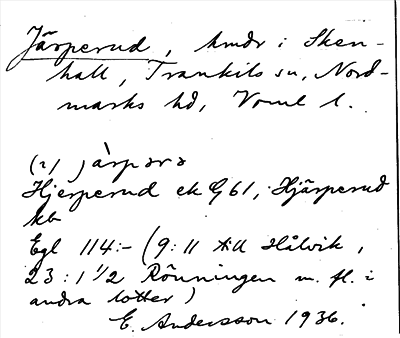 Järperud, hmdr i Sken-
hall, Trankils sn, Nord-
marks hd, Vrml l.
(2) jàrpərə
Hjerperud ek G 61, Hjärperud
kb
Egl 114:- (9:11 till Hålvik,
23:1 1/2 Rönningen m. fl. i
andra lotter)
E. Andersson 1936.